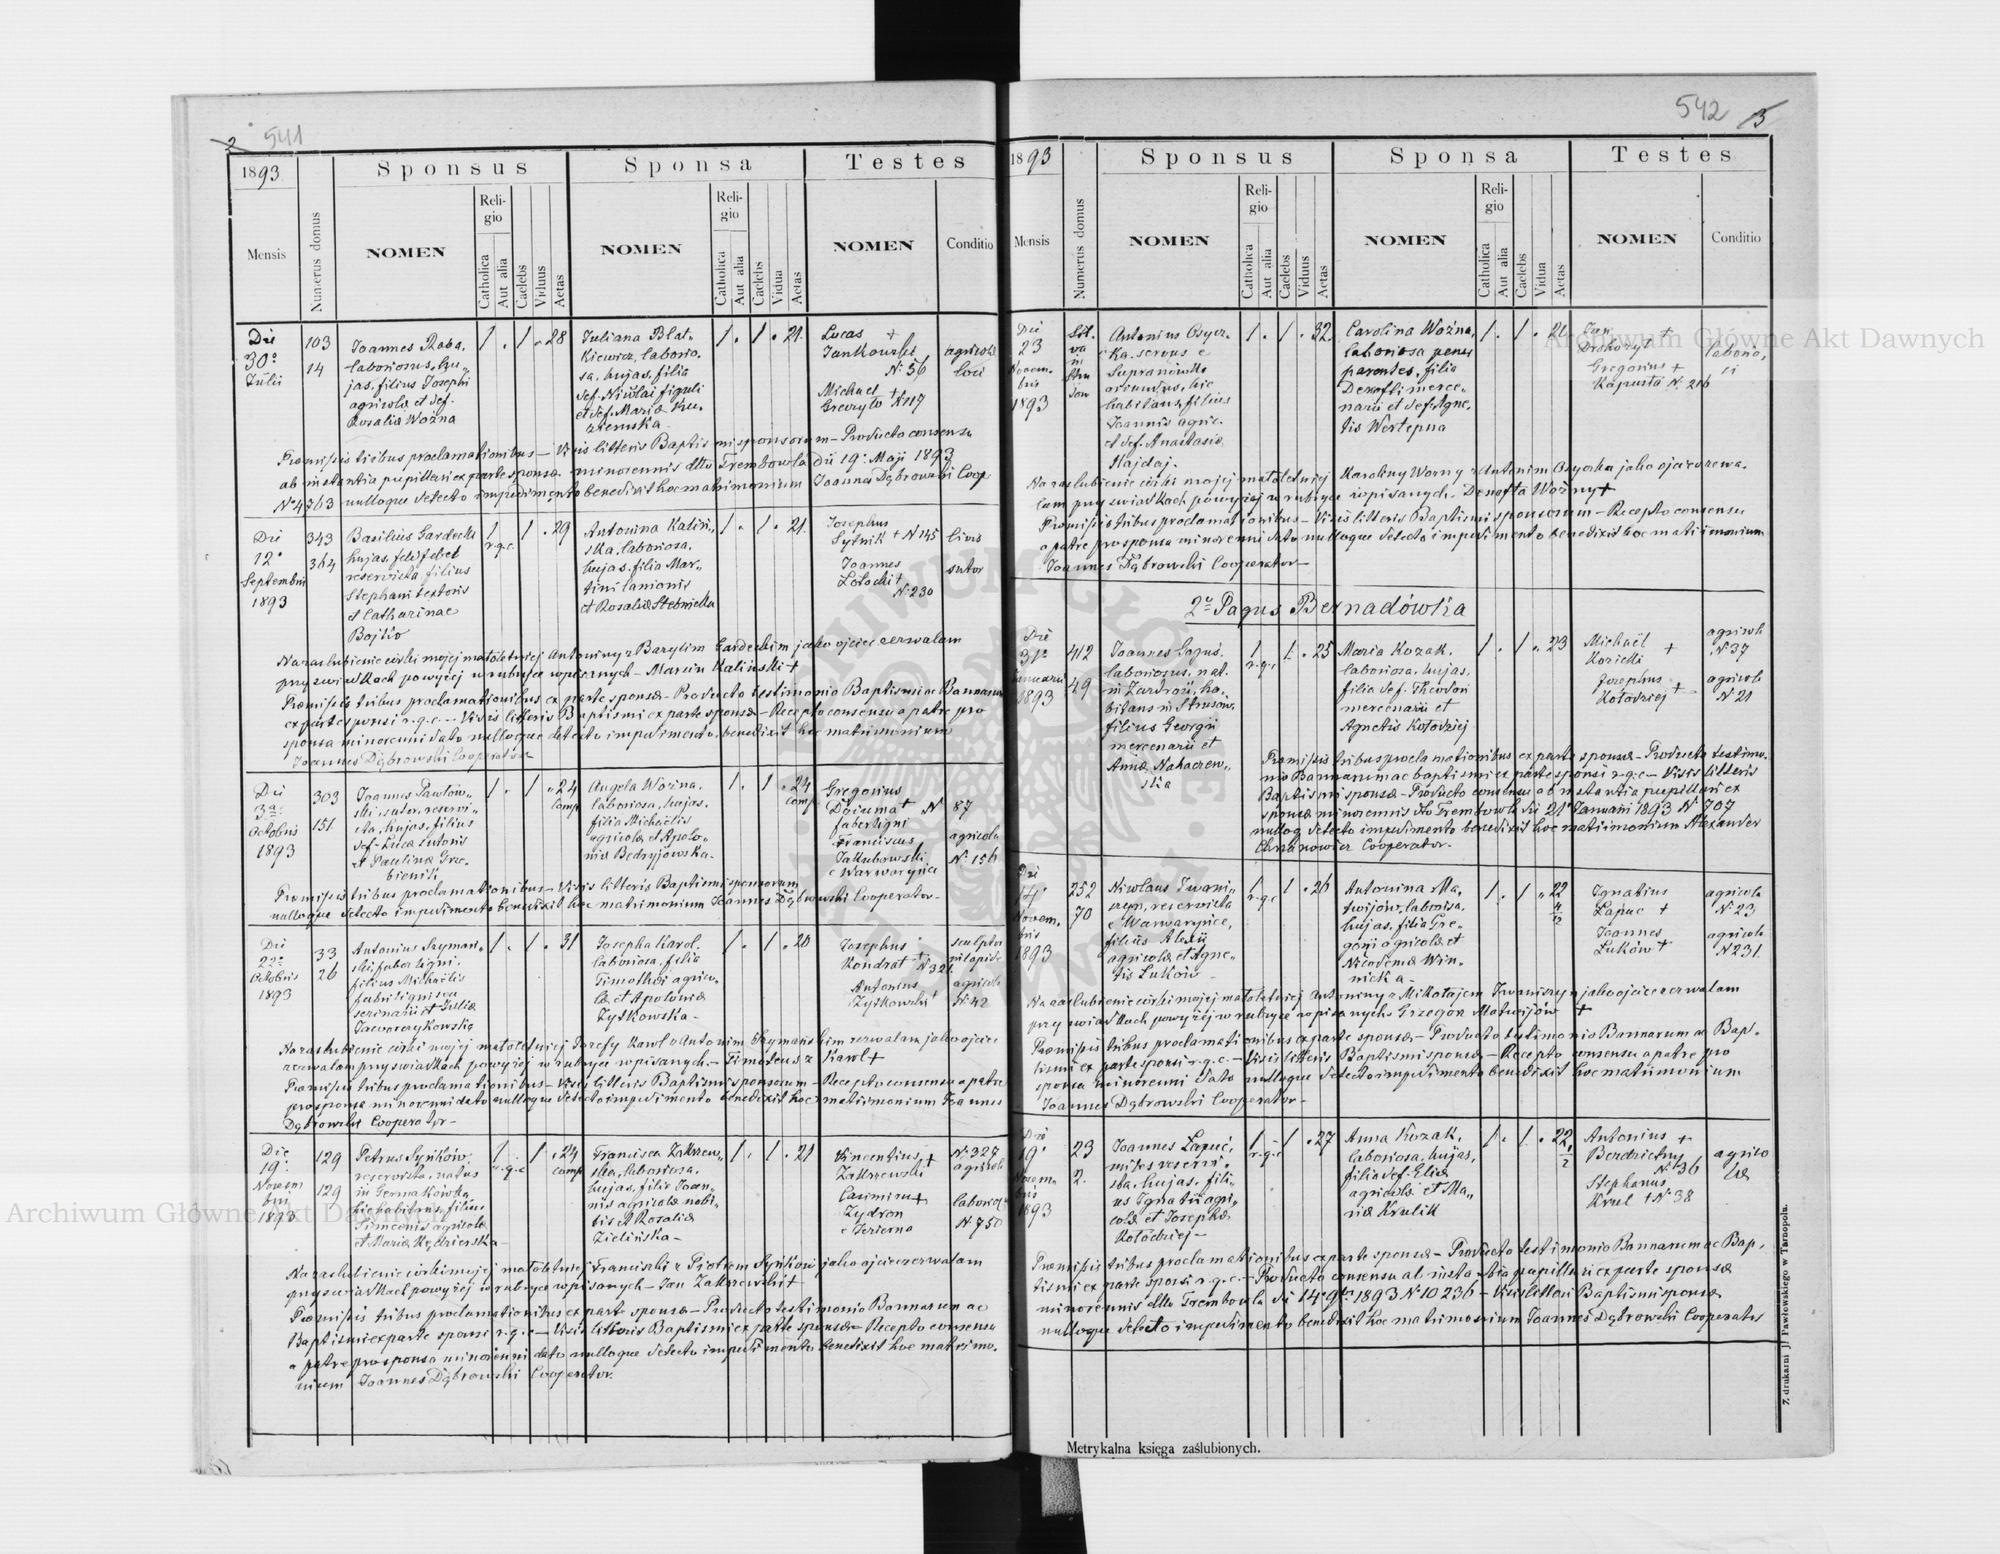 2 541
1893
Sponsus
Sponsa
Testes
Mensis
Numerus domus
NOMEN
Religio
Catholica
Aut alia
Caelebs
Viduus
Aetas
NOMEN
Religio
Catholica
Aut alia
Caelebs
Vidua
Aetas
NOMEN
Conditio
Die
30a
Julii
103
14
Joannes Raba,
laboriosus, hu„
jas, filius Josephi
agricolæ et def.
Rosaliæ Woźna
1 . 1 . 28
Juliana Blat„
kiewicz, laborio„
sa, hujas, filia
def. Nicolai figuli
et def. Mariæ
1 . 1 . 21
Lucas +
Jankowski
N. 56
Michael
+ N 117
agricolæ
loci
Præmissis tribus proclamationibus – Visis litteris Baptismi sponsorum – Producto consensu
ab instantia pupillari ex parte sponsæ minorennis dtto Trembowla dii 19. Maji 1893
N. 4363 nulloque detecto impedimento benedixit hoc matrimonium Joannes Dąbrowski Coop
Die
12a
Septembris
1893
343
364
Basilius Gardecki
hujas,
reservista, filius
Stephani textoris
et Catharinae
Bojko
1 r.g.c. 1 . 29
Antonina Kaliń„
ska, laboriosa,
hujas, filia Mar„
tini lanionis
et Rosaliæ Stebnicka
1 . 1 . 21
Josephus
Sytnik + N 145
Joannes
Zołocki +
N. 230
civis
sutor
Na zaslubienie córki mojej małoletniej Antoniny z Bazylim Gardeckim jako ojciec zezwalam
przy swiadkach powyżej w rubryce wpisanych – Marcin Kaliński +
Præmissis tribus proclamationibus ex parte sponsæ – Producto testimonio Baptismi ac Bannarum
ex parte sponsi r.g.c. – Visis litteris Baptismi ex parte sponsæ – Recepto consensu a patre pro
sponsa minorenni dato nulloque detecto impedimento, benedixit hoc matrimonium
Joannes Dąbrowski Cooperator
Die
3a
Octobris
1893
303
151
Joannes Pawłow„
ski, sutor, reservi„
sta, hujas, filius
def. Lucæ sutoris
et Paulinæ Grze„
bienik
1 . 1 . 24
comp
Angela Woźna,
laboriosa, hujas,
filia Michaëlis
agricolæ et Apolo„
niæ Bedryjowska
1 . 1 . 24
comp
Gregorius
Doczuma + N 87
faber ligni
Franciscus
Jakubowski
e Warwarynce
agricola
N. 156
Præmissis tribus proclamationibus – Visis litteris Baptismi sponsorum
nulloque detecto impedimento benedixit hoc matrimonium Joannes Dąbrowski Cooperator
Die
22a
Octobris
1893
33
26
Antonius Szyman„
ski, faber ligni,
filius Michaëlis
fabri ligni
et Juliæ
Jaworczykowska
1 . 1 . 31
Josepha Karol,
laboriosa, filia
Timothei agrico„
læ et Apoloniæ
Zytkowska –
1 . 1 . 20
Josephus
Kondrat + N 321
Antonius
Zytkowski +
sculptor
agricola
N. 42
Na zaslubienie córki mojej małoletniej Józefy Karol z Antonim Szymańskim zezwalam jako ojciec
zezwalam przy swiadkach powyżej w rubryce wpisanych – Timoteusz Karol +
Præmissis tribus proclamationibus – Visis litteris Baptismi sponsorum – Recepto consensu a patre
pro sponsa minorenni dato nulloque detecto impedimento benedixit hoc matrimonium Joannes
Dąbrowski Cooperator –
Die
19a
Novem
bris
1893
129
129
Petrus Syńków
reservista, natus
in Germakówka
hic habitans, filius
Simeonis agricolæ
et Mariæ Kędzierska –
1 r.g.c 1 . 24
comp
Francisca Zakrzew„
ska, laboriosa,
hujas, filia Joan„
nis agricolæ nobi„
lis et Rosaliæ
Zielińska –
1 . 1 . 21
Vincentius +
Zakrzewski
Casimirus +
Zydron
e Tezierna
N. 327
agricola
laboriosus
N. 750
Na zaslubienie córki mojej małoletniej Franciszki z Piotrem Syńków jako ojciec zezwalam
przy swiadkach powyżej w rubryce wpisanych – Jan Zakrzewski +
Præmissis tribus proclamationibus ex parte sponsæ – Producto testimonio Bannarum ac
Baptismi ex parte sponsi r.g.c – Visis litteris Baptismi ex parte sponsæ – Recepto consensu
a patre pro sponsa minorenni dato nulloque detecto impedimento benedixit hoc matrimo„
nium Joannes Dąbrowski Cooperator.
542 3
1893
Sponsus
Sponsa
Testes
Mensis
Numerus domus
NOMEN
Religio
Catholica
Aut alia
Caelebs
Viduus
Aetas
NOMEN
Religio
Catholica
Aut alia
Caelebs
Vidua
Aetas
NOMEN
Conditio
Die
23
Novem„
bris
1893
Sil„
va
in
Stru
sow
Antonius Osycz„
ka, servus e
Supranówka
oriundus, hic
habitans, filius
Joannis agric.
et def. Anastasiæ
Hajdaj.
1 . 1 . 32
Carolina Woźna,
laboriosa penes
parentes, filia
Denofti merce„
narii et def. Agne„
tis Wertepna
1 . 1 . 21
Jan +
Prokozyt
Gregorius +
Kapusta N. 216
laborio„
si
Na zaslubienie córki mojej małoletniej Karoliny Wozny z Antonim Osyczka jako ojciec zezwa„
lam przy swiadkach powyżej w rubryce wpisanych – Denofta Wozny +
Præmissis tribus proclamationibus – Visis litteris Baptismi sponsorum – Recepto consensu
a patre pro sponsa minorenni dato nulloque detecto impedimento benedixit hoc matrimonium
Joannes Dąbrowski Cooperator –
2us Pagus Bernadówka
Die
31a
Januarii
1893
412
49
Joannes Łoguś,
laboriosus, nat.
in Zazdrość, ha„
bitans in Strusow,
filius Georgii
mercenarii et
Annæ Nakaczew„
ska
1 r.g.c 1 . 25
Maria Kozak,
laboriosa, hujas,
filia def. Theodori
mercenarii et
Agnetis Kołodziej
1 . 1 . 23
Michaël
Kozicki +
Josephus
Kołodziej +
agricola
N. 37
agricola
N. 21
Præmissis tribus proclamationibus ex parte sponsæ – Producto testimo„
nio Bannarum ac baptismi ex parte sponsi r.g.c – Visis litteris
Baptismi sponsæ – Producto consensu ab instantia pupillari ex
sponsæ minorennis dtto Trembowla dii 21 Januarii 1893 N. 707
nulloq detecto impedimento benedixit hoc matrimonium Alexander
Chrzanowicz Cooperator.
Die
14a
Novem„
bris
1893
252
70
Nicolaus Iwani„
szyn, reservista
e Warwarynce,
filius Alexii
agricolæ et Agne„
tis Luków
1 r.g.c 1 . 26
Antonina Ma„
twijów, laboriosa,
hujas, filia Gre„
gorii agricolæ et
Nicodemæ Win„
nicka –
1 . 1 . 22
Ignatius
Łapuc +
Joannes
Luków +
agricola
N. 23
agricola
N 231
Na zaslubienie córki mojej małoletniej Antoniny z Mikołajem Iwaniszyn jako ojciec zezwalam
przy swiadkach powyżej w rubryce wpisanych Grzegorz Matwijów +
Præmissis tribus proclamationibus ex parte sponsæ – Producto testimonio Bannarum ac Bap„
tismi ex parte sponsi r.g.c. – Visis litteris Baptismi sponsæ – Recepto consensu a patre pro
sponsa minorenni dato nulloque detecto impedimento benedixit hoc matrimonium
Joannes Dąbrowski Cooperator –
Die
19a
Novem„
bris
1893
23
2.
Joannes Łapuć,
miles reservi„
sta, hujas, fili„
us Ignatii agri„
colæ et Josephæ
Kołodziej –
1 r.g.c 1 . 27
Anna Kozak,
laboriosa, hujas,
filia def. Eliæ
agricolæ et Ma„
riæ Krulik
1 . 1 . 22
Antonius +
Bezdrietny
N. 36
Stephanus
Krul + N. 38
agrico
læ
Præmissis tribus proclamationibus ex parte sponsæ – Producto testimonio Bannarum ac Bap„
tismi ex parte sponsi r.g.c. – Producto consensu ab instantia pupillari ex parte sponsæ
minorennis dtto Trembowla dii 14 9br 1893 N. 10236 – Visis litteris Baptismi sponsæ
nulloque detecto impedimento benedixit hoc matrimonium Joannes Dąbrowski Cooperator
Metrykalna księga zaślubionych.
Z drukarni J. Pawłowskiego w Tarnopolu.
Archiwum Główne Akt Dawnych
Archiwum Główne Akt Dawnych